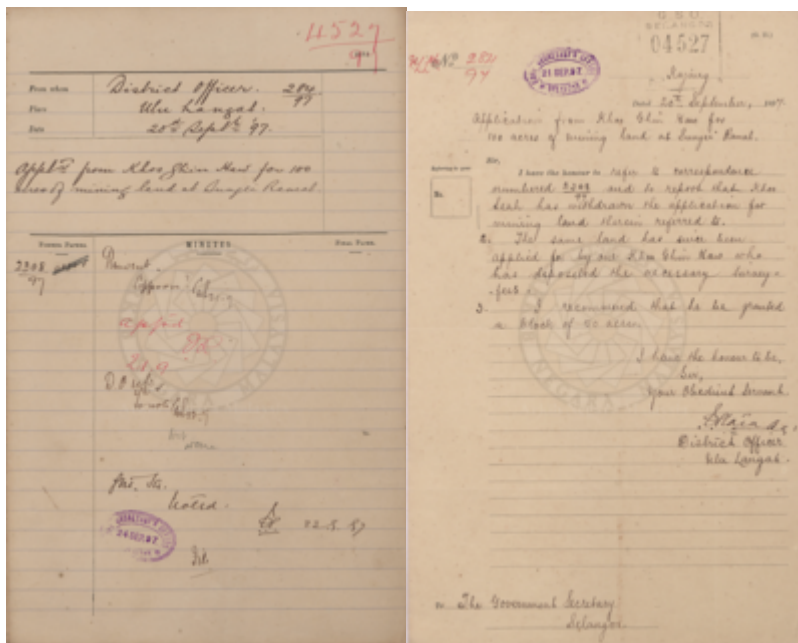 4527
97
From whom
District Officer. 204
97
Place
Ulu Langat.
Date
20th Septr '97.
Appln from Khoo Ghim Haw for 100
acres of mining land at Sungei Ramal.
MINUTES
2308
97
appd
21.9
D.O.
to note
Noted.
SECRETARY'S OFFICE
24 SEP. 97
SELANGOR
04527
No 204
97
SECRETARY'S OFFICE
21 SEP. 97
Kajang
20th September, 1897.
Application from Khoo Ghim Haw for
100 acres of mining land at Sungei Ramal.
Sir,
I have the honour to refer to correspondence
numbered 2308/97 and to report that Khoo
Seah has withdrawn the application for
mining land therein referred to.
2. The same land has since been
applied for by one Khoo Ghim Haw who
has deposited the necessary survey-
fees.
3. I recommend that he be granted
a block of 50 acres.
I have the honour to be,
Sir,
Your Obedient Servant.
District Officer
Ulu Langat.
The Government Secretary
Selangor.